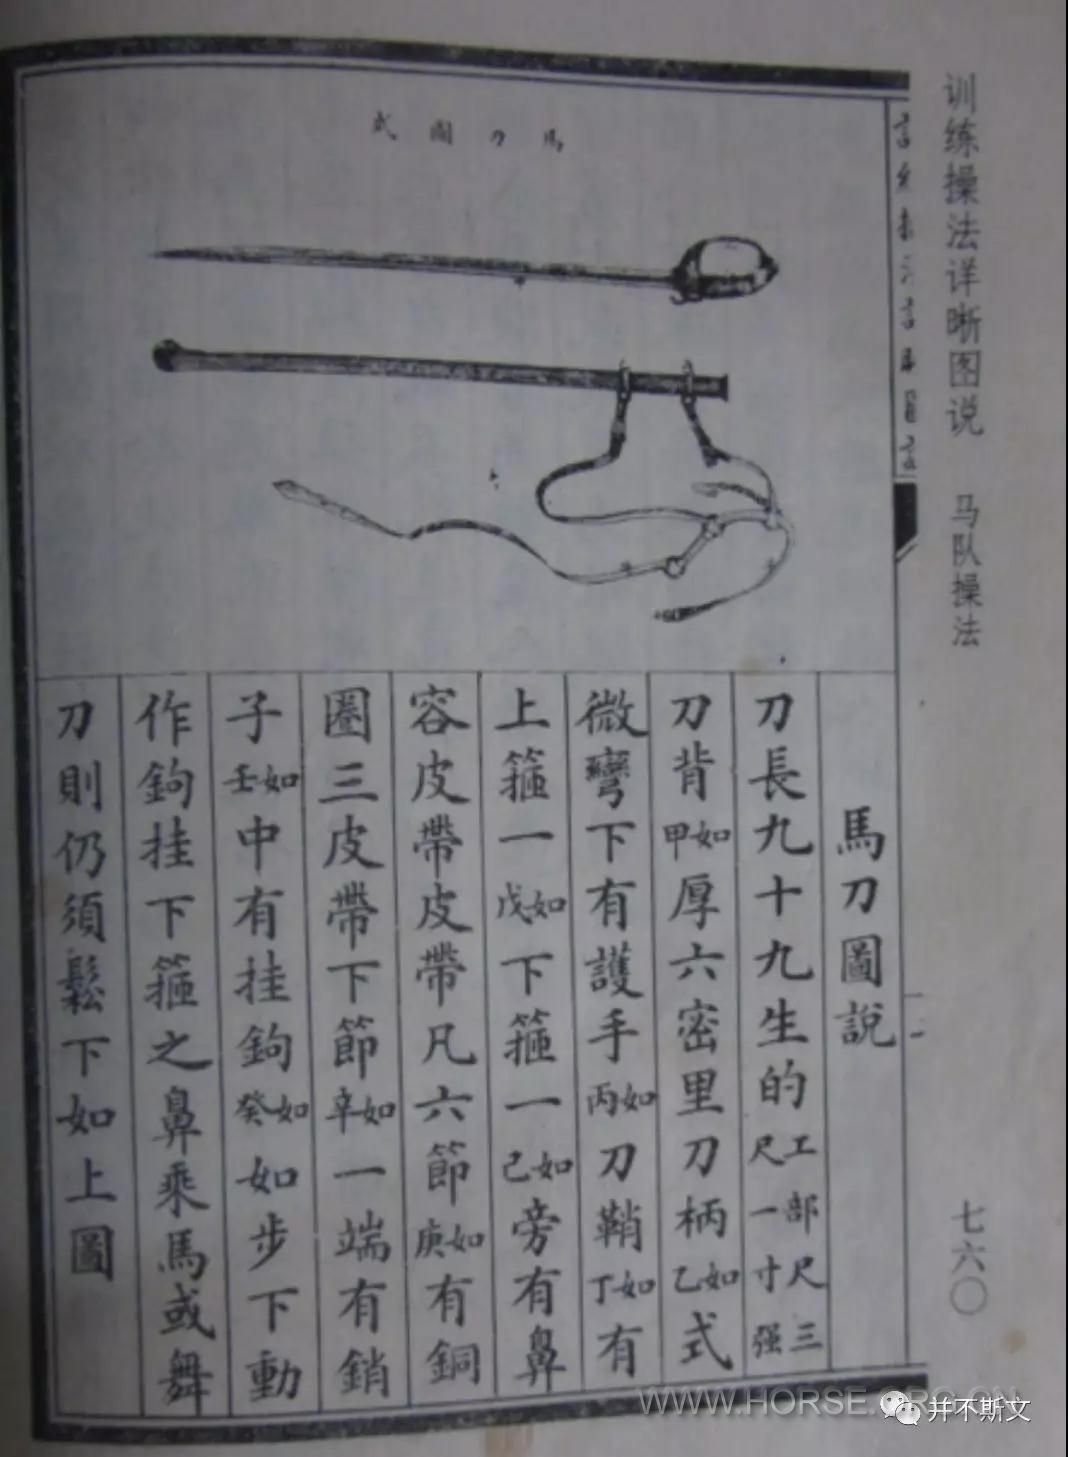 训练操法详晰图说 马队操法
七六〇
馬刀圖式
馬刀圖說
刀長九十九生的工部尺三尺一寸强
刀背如甲厚六密里刀柄如乙式
微彎下有護手如丙刀鞘如丁有
上箍一如戊下箍一如己旁有鼻
容皮帶皮帶凡六節如庚有銅
圈三皮帶下節如辛一端有銷
子如壬中有挂鉤如癸如步下動
作鉤挂下箍之鼻乘馬或舞
刀則仍須鬆下如上圖
WWW.HORSE.ORG.CN
并不斯文